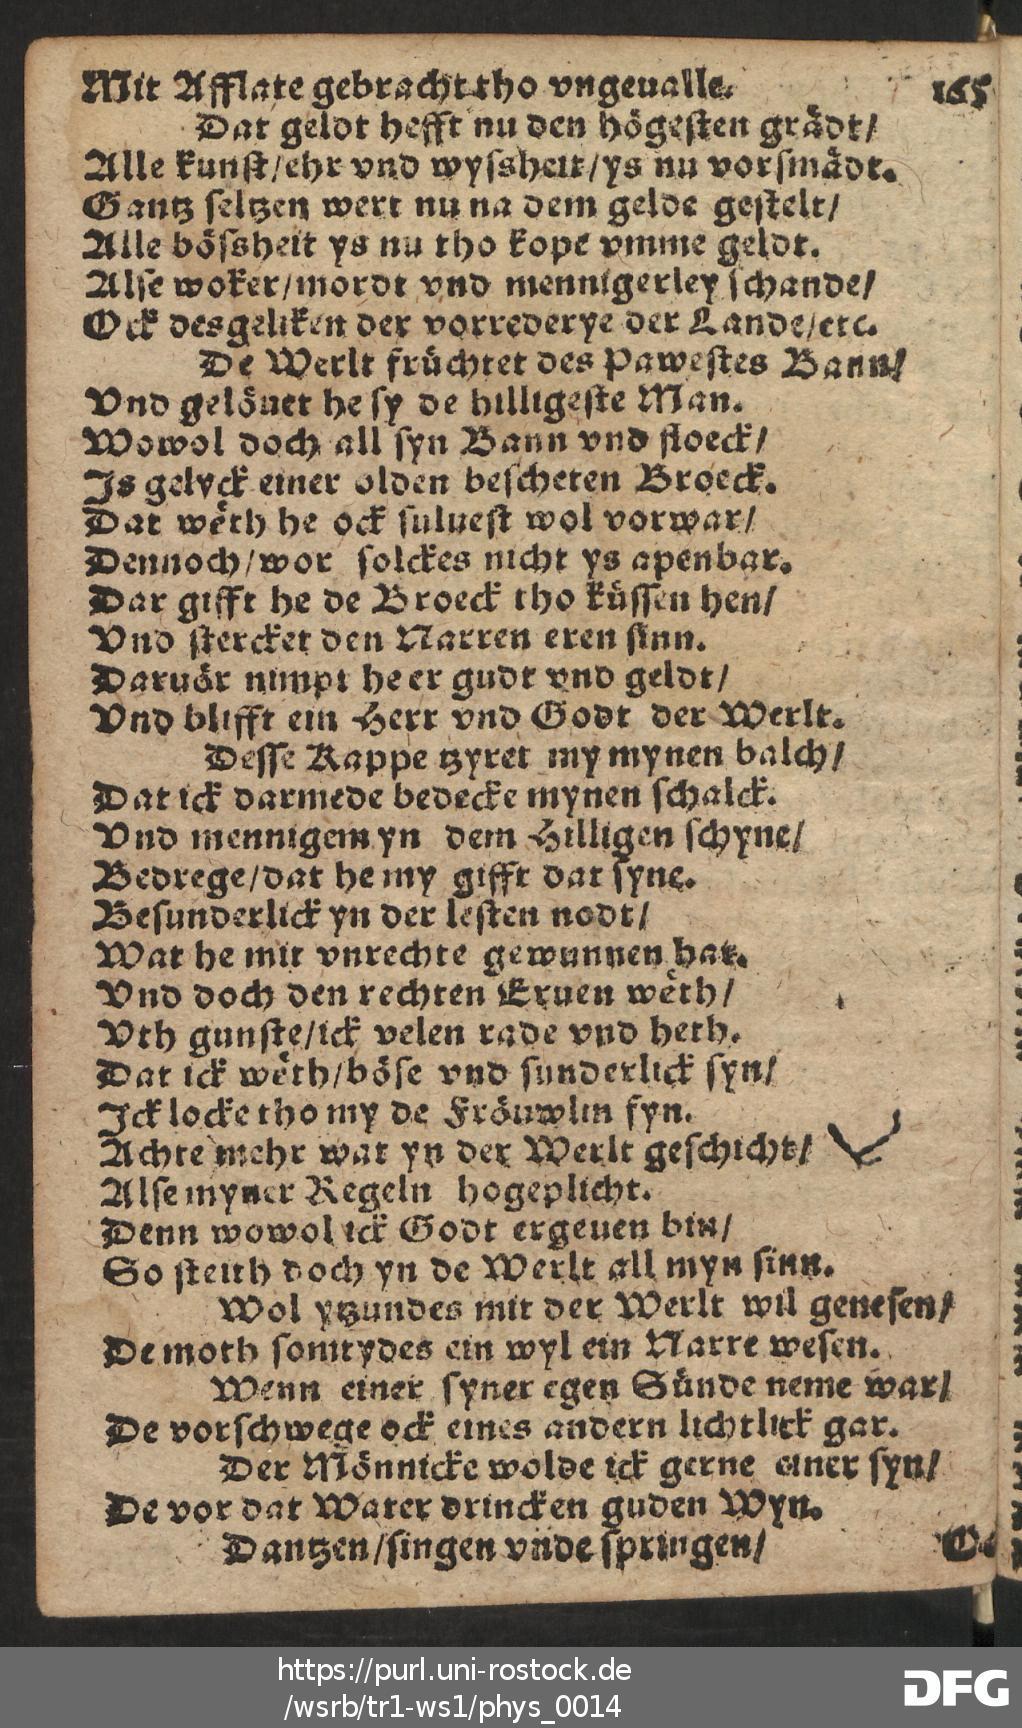 Mit Afflate gebracht tho vngeualle. 165
Dat geldt hefft nu den högesten grädt/
Alle kunst/ehr vnd wyssheit/ys nu vorsmädt.
Gantz seltzen wert nu na dem gelde gestelt/
Alle bössheit ys nu tho kope vmme geldt.
Alse woker/mordt vnd mennigerley schande/
Ock desgeliken der vorrederye der Lande/etc.
De Werlt früchtet des Pawestes Bann/
Vnd gelöuet he sy de hilligeste Man.
Wowol doch all syn Bann vnd floeck/
Js gelyck einer olden bescheten Broeck.
Dat weͤth he ock suluest wol vorwar/
Dennoch/wor solckes nicht ys apenbar.
Dar gifft he de Broeck tho küssen hen/
Vnd stercket den Narren eren sinn.
Daruär nimpt he er gudt vnd geldt/
Vnd blifft ein Herr vnd Godt der Werlt.
Desse Kappe tzyret my mynen balch/
Dat ick darmede bedecke mynen schalck.
Vnd mennigem yn dem Hilligen schyne/
Bedrege/dat he my gifft dat syne.
Besunderlick yn der lesten nodt/
Wat he mit vnrechte gewunnen hat.
Vnd doch den rechten Eruen weͤth/
Vth gunste/ick velen rade vnd heth.
Dat ick weͤth/böse vnd sunderlick syn/
Jck locke tho my de Fröuwlin fyn.
Achte mehr wat yn der Werlt geschicht/
Alse myner Regeln hogeplicht.
Denn wowol ick Godt ergeuen bin/
So steith doch yn de Werlt all myn sinn.
Wol ytzundes mit der Werlt wil genesen/
De moth somtydes ein wyl ein Narre wesen.
Wenn einer syner egen Sünde neme war/
De vorschwege ock eines andern lichtlick gar.
Der Mönnicke wolde ick gerne einer syn/
De vor dat Water drincken guden Wyn.
Dantzen/singen vnde springen/
https://purl.uni-rostock.de
/wsrb/tr1-ws1/phys_0014
DFG